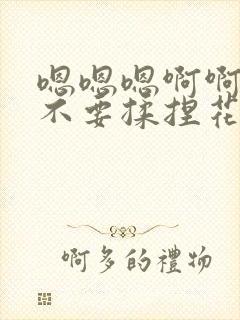 嗯嗯嗯啊啊
不要揉捏花
啊多的禮物